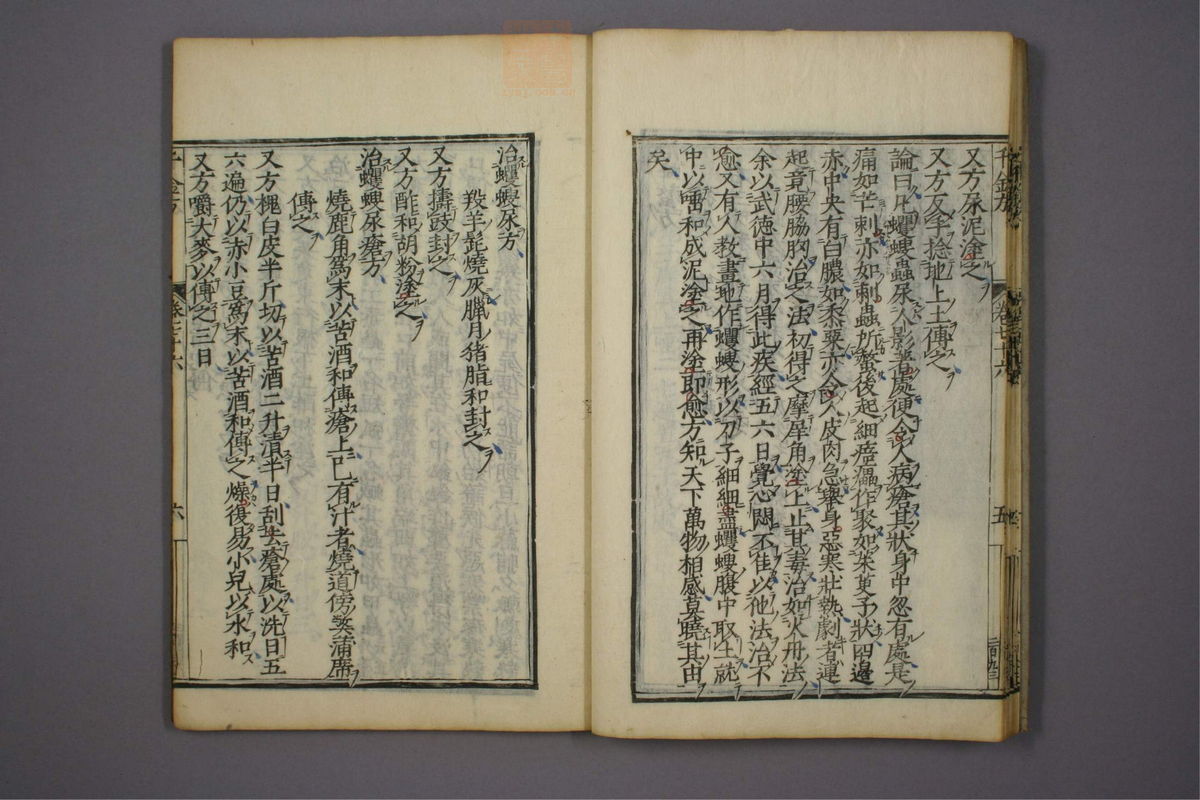 又方尿泥塗之
又方反手捻地上土傅之
論曰凡蠼螋蟲尿人影著處便令人病瘡其狀身中忽有處是
痛如芒刺亦如刺蟲所螫後起細㾦㿔作聚如茱萸子狀四邊
赤中央有白膿如黍粟亦令人皮肉急舉身惡寒壯熱劇者連
起竟腰脇胸治之法初得之摩犀角塗上止其毒治如火丹法
余以武德中六月得此疾經五六日覺心悶不佳以他法治不
愈又有人教畫地作蠼螋形以刀子細細盡蠼螋腹中取土就
中以唾和成泥塗之再塗即愈方知天下萬物相感莫曉其由
矣
千金方
卷七十六
五
治蠼螋尿方
羖羊髭燒灰臘月猪脂和封之
又方擣豉封之
又方酢和胡粉塗之
治蠼螋尿瘡方
燒鹿角爲末以苦酒和傅瘡上已有汁者燒道傍弊蒲席
傅之
又方槐白皮半斤切以苦酒二升漬半日刮去瘡處以洗日五
六遍仍以赤小豆爲末以苦酒和傅之燥復易小兒以水和
又方嚼大麥以傅之三日
千金方
卷七十六
六